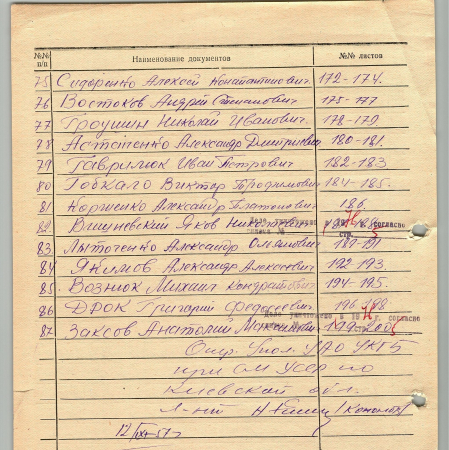 №№ п/п Наименование документов №№ листов
75 Сидоренко Алексей Константинович 172-174.
76 Востоков Андрей Степанович 175-177
77 Трошин Николай Иванович 178-179
78 Астапенко Александр Дмитриевич 180-181.
79 Гаврилюк Иван Петрович 182-183
80 Виктор Трофимович 184-185.
81 Корженко Александр Платонович 186.
82 Вишневский Яков
согласно
83 Александр 189-191
84 Якимов Александр Алексеевич 192-193.
85 Вознюк Михаил Кондратович 194-195.
86 Дрок Григорий Федосеевич 196-198
Дело уничтожено в 19 г. согласно
87 Заксов Анатолий
Опер Упол. УАО УКГБ
при СМ УССР по
Киевской обл.
Л-нт
12/IX-57